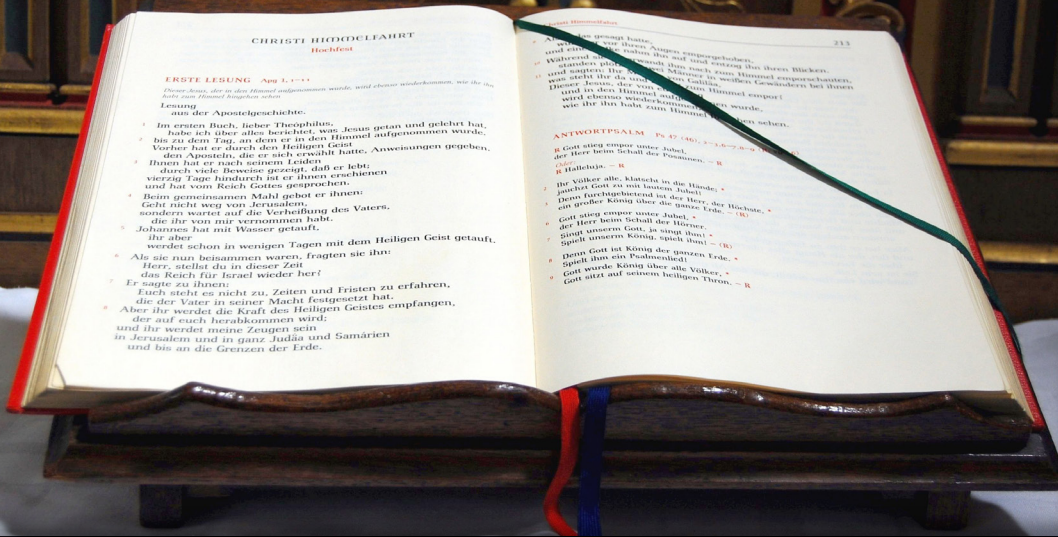 CHRISTI HIMMELFAHRT
Hochfest
ERSTE LESUNG Apg 1, 1–11
Dieser Jesus, der in den Himmel aufgenommen wurde, wird ebenso wiederkommen, wie ihr ihn
habt zum Himmel hingehen sehen
Lesung
aus der Apostelgeschichte.
1 Im ersten Buch, lieber Theophilus,
habe ich über alles berichtet, was Jesus getan und gelehrt hat,
2 bis zu dem Tag, an dem er in den Himmel aufgenommen wurde.
Vorher hat er durch den Heiligen Geist
den Aposteln, die er sich erwählt hatte, Anweisungen gegeben.
3 Ihnen hat er nach seinem Leiden
durch viele Beweise gezeigt, daß er lebt;
vierzig Tage hindurch ist er ihnen erschienen
und hat vom Reich Gottes gesprochen.
4 Beim gemeinsamen Mahl gebot er ihnen:
Geht nicht weg von Jerusalem,
sondern wartet auf die Verheißung des Vaters,
die ihr von mir vernommen habt.
5 Johannes hat mit Wasser getauft,
ihr aber
werdet schon in wenigen Tagen mit dem Heiligen Geist getauft.
6 Als sie nun beisammen waren, fragten sie ihn:
Herr, stellst du in dieser Zeit
das Reich für Israel wieder her?
7 Er sagte zu ihnen:
Euch steht es nicht zu, Zeiten und Fristen zu erfahren,
die der Vater in seiner Macht festgesetzt hat.
8 Aber ihr werdet die Kraft des Heiligen Geistes empfangen,
der auf euch herabkommen wird;
und ihr werdet meine Zeugen sein
in Jerusalem und in ganz Judäa und Samárien
und bis an die Grenzen der Erde.
Christi Himmelfahrt 213
das gesagt hatte,
vor ihren Augen emporgehoben,
und eine nahm ihn auf und entzog ihn ihren Blicken.
10 Während sie ihm nach zum Himmel emporschauten,
standen Männer in weißen Gewändern bei ihnen
11 und sagten: Ihr von Galiläa,
was steht ihr da und zum Himmel empor?
Dieser Jesus, der von euch
und in den Himmel wurde,
wird ebenso wiederkommen
wie ihr ihn habt zum Himmel sehen.
ANTWORTPSALM Ps 47 (46), 2–3.6–7.8–9
R Gott stieg empor unter Jubel,
der Herr beim Schall der Posaunen. – R
Oder:
R Halleluja. – R
2 Ihr Völker alle, klatscht in die Hände; *
jauchzt Gott zu mit lautem Jubel!
3 Denn furchtgebietend ist der Herr, der Höchste, *
ein großer König über die ganze Erde. – (R)
6 Gott stieg empor unter Jubel, *
der Herr beim Schall der Hörner.
7 Singt unserm Gott, ja singt ihm! *
Spielt unserm König, spielt ihm! – (R)
8 Denn Gott ist König der ganzen Erde. *
Spielt ihm ein Psalmenlied!
9 Gott wurde König über alle Völker, *
Gott sitzt auf seinem heiligen Thron. – R